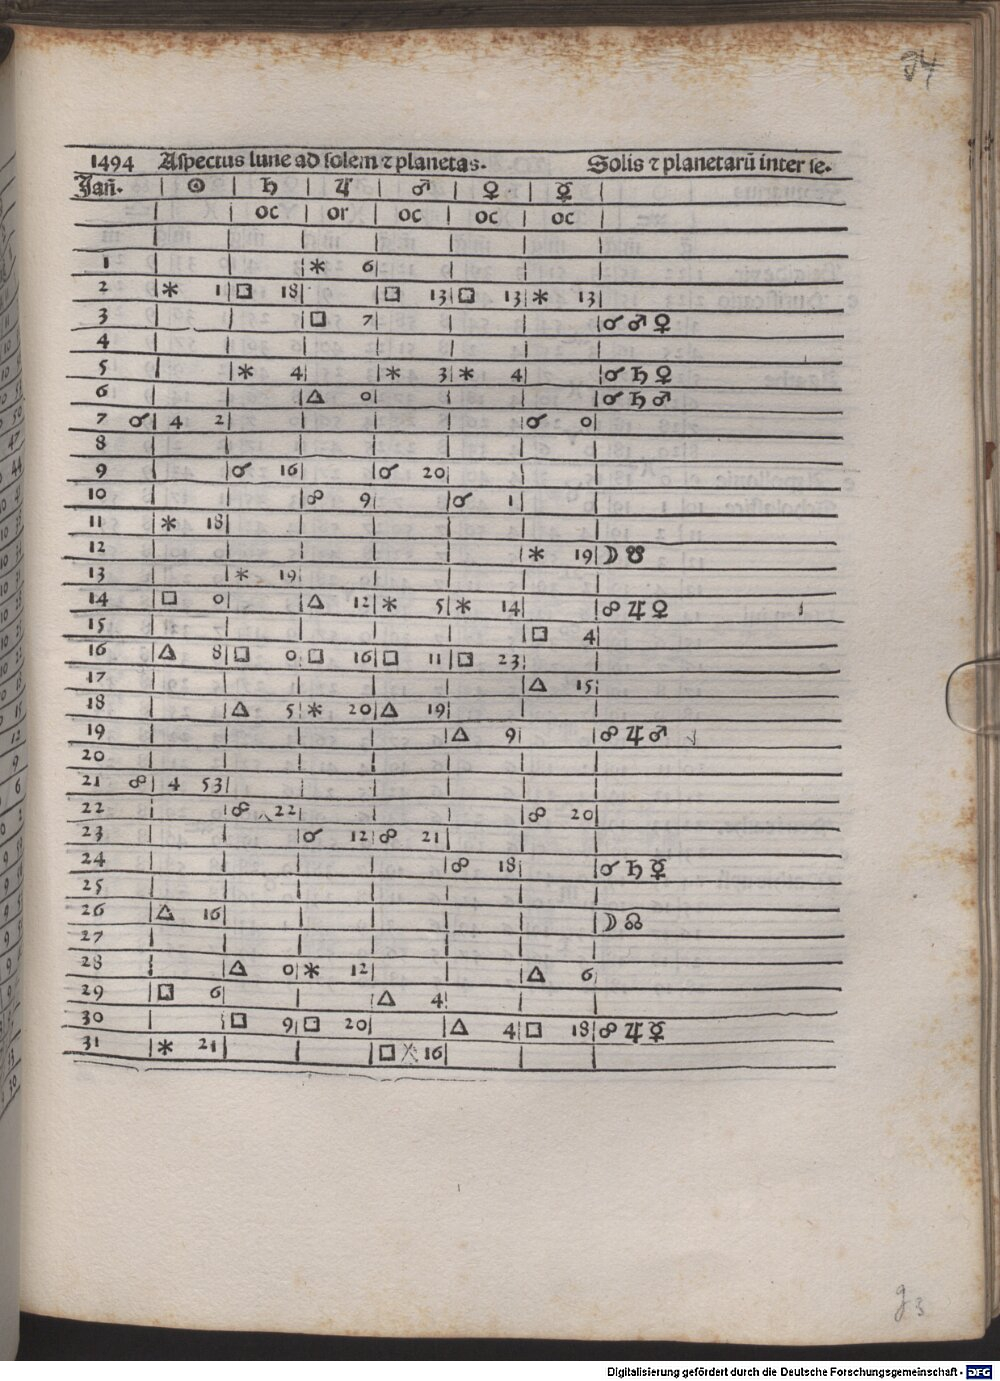 94
1494 Aſpectus lune ad ſolem ⁊ planetas. Solis ⁊ planetarū inter ſe.
Jañ. ☉ ♄ ♃ ♂ ♀ ☿
oc or oc oc oc
1 ⚹ 6
2 ⚹ 1 □ 18 □ 13 □ 13 ⚹ 13
3 □ 7 ☌ ♂ ♀
4
5 ⚹ 4 ⚹ 3 ⚹ 4 ☌ ♄ ♀
6 △ 0 ☌ ♄ ♂
7 ☌ 4 2 ☌ 0
8
9 ☌ 16 ☌ 20
10 ☍ 9 ☌ 1
11 ⚹ 18
12 ⚹ 19 ☽ ☋
13 ⚹ 19
14 □ 0 △ 12 ⚹ 5 ⚹ 14 ☍ ♃ ♀
15 □ 4
16 △ 8 □ 0 □ 16 □ 11 □ 23
17 △ 15
18 △ 5 ⚹ 20 △ 19
19 △ 9 ☍ ♃ ♂
20
21 ☍ 4 53
22 ☍ 22 ☍ 20
23 ☌ 12 ☍ 21
24 ☍ 18 ☌ ♄ ☿
25
26 △ 16 ☽ ☊
27
28 △ 0 ⚹ 12 △ 6
29 □ 6 △ 4
30 □ 9 □ 20 △ 4 □ 18 ☍ ♃ ☿
31 ⚹ 21 □ 16
g3
Digitalisierung gefördert durch die Deutsche Forschungsgemeinschaft - DFG